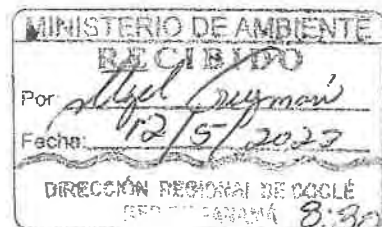 MINISTERIO DE AMBIENTE
RECIBIDO
Por
Fecha: 12/5/2022
DIRECCIÓN REGIONAL DE COCLÉ
PANAMÁ 8:30